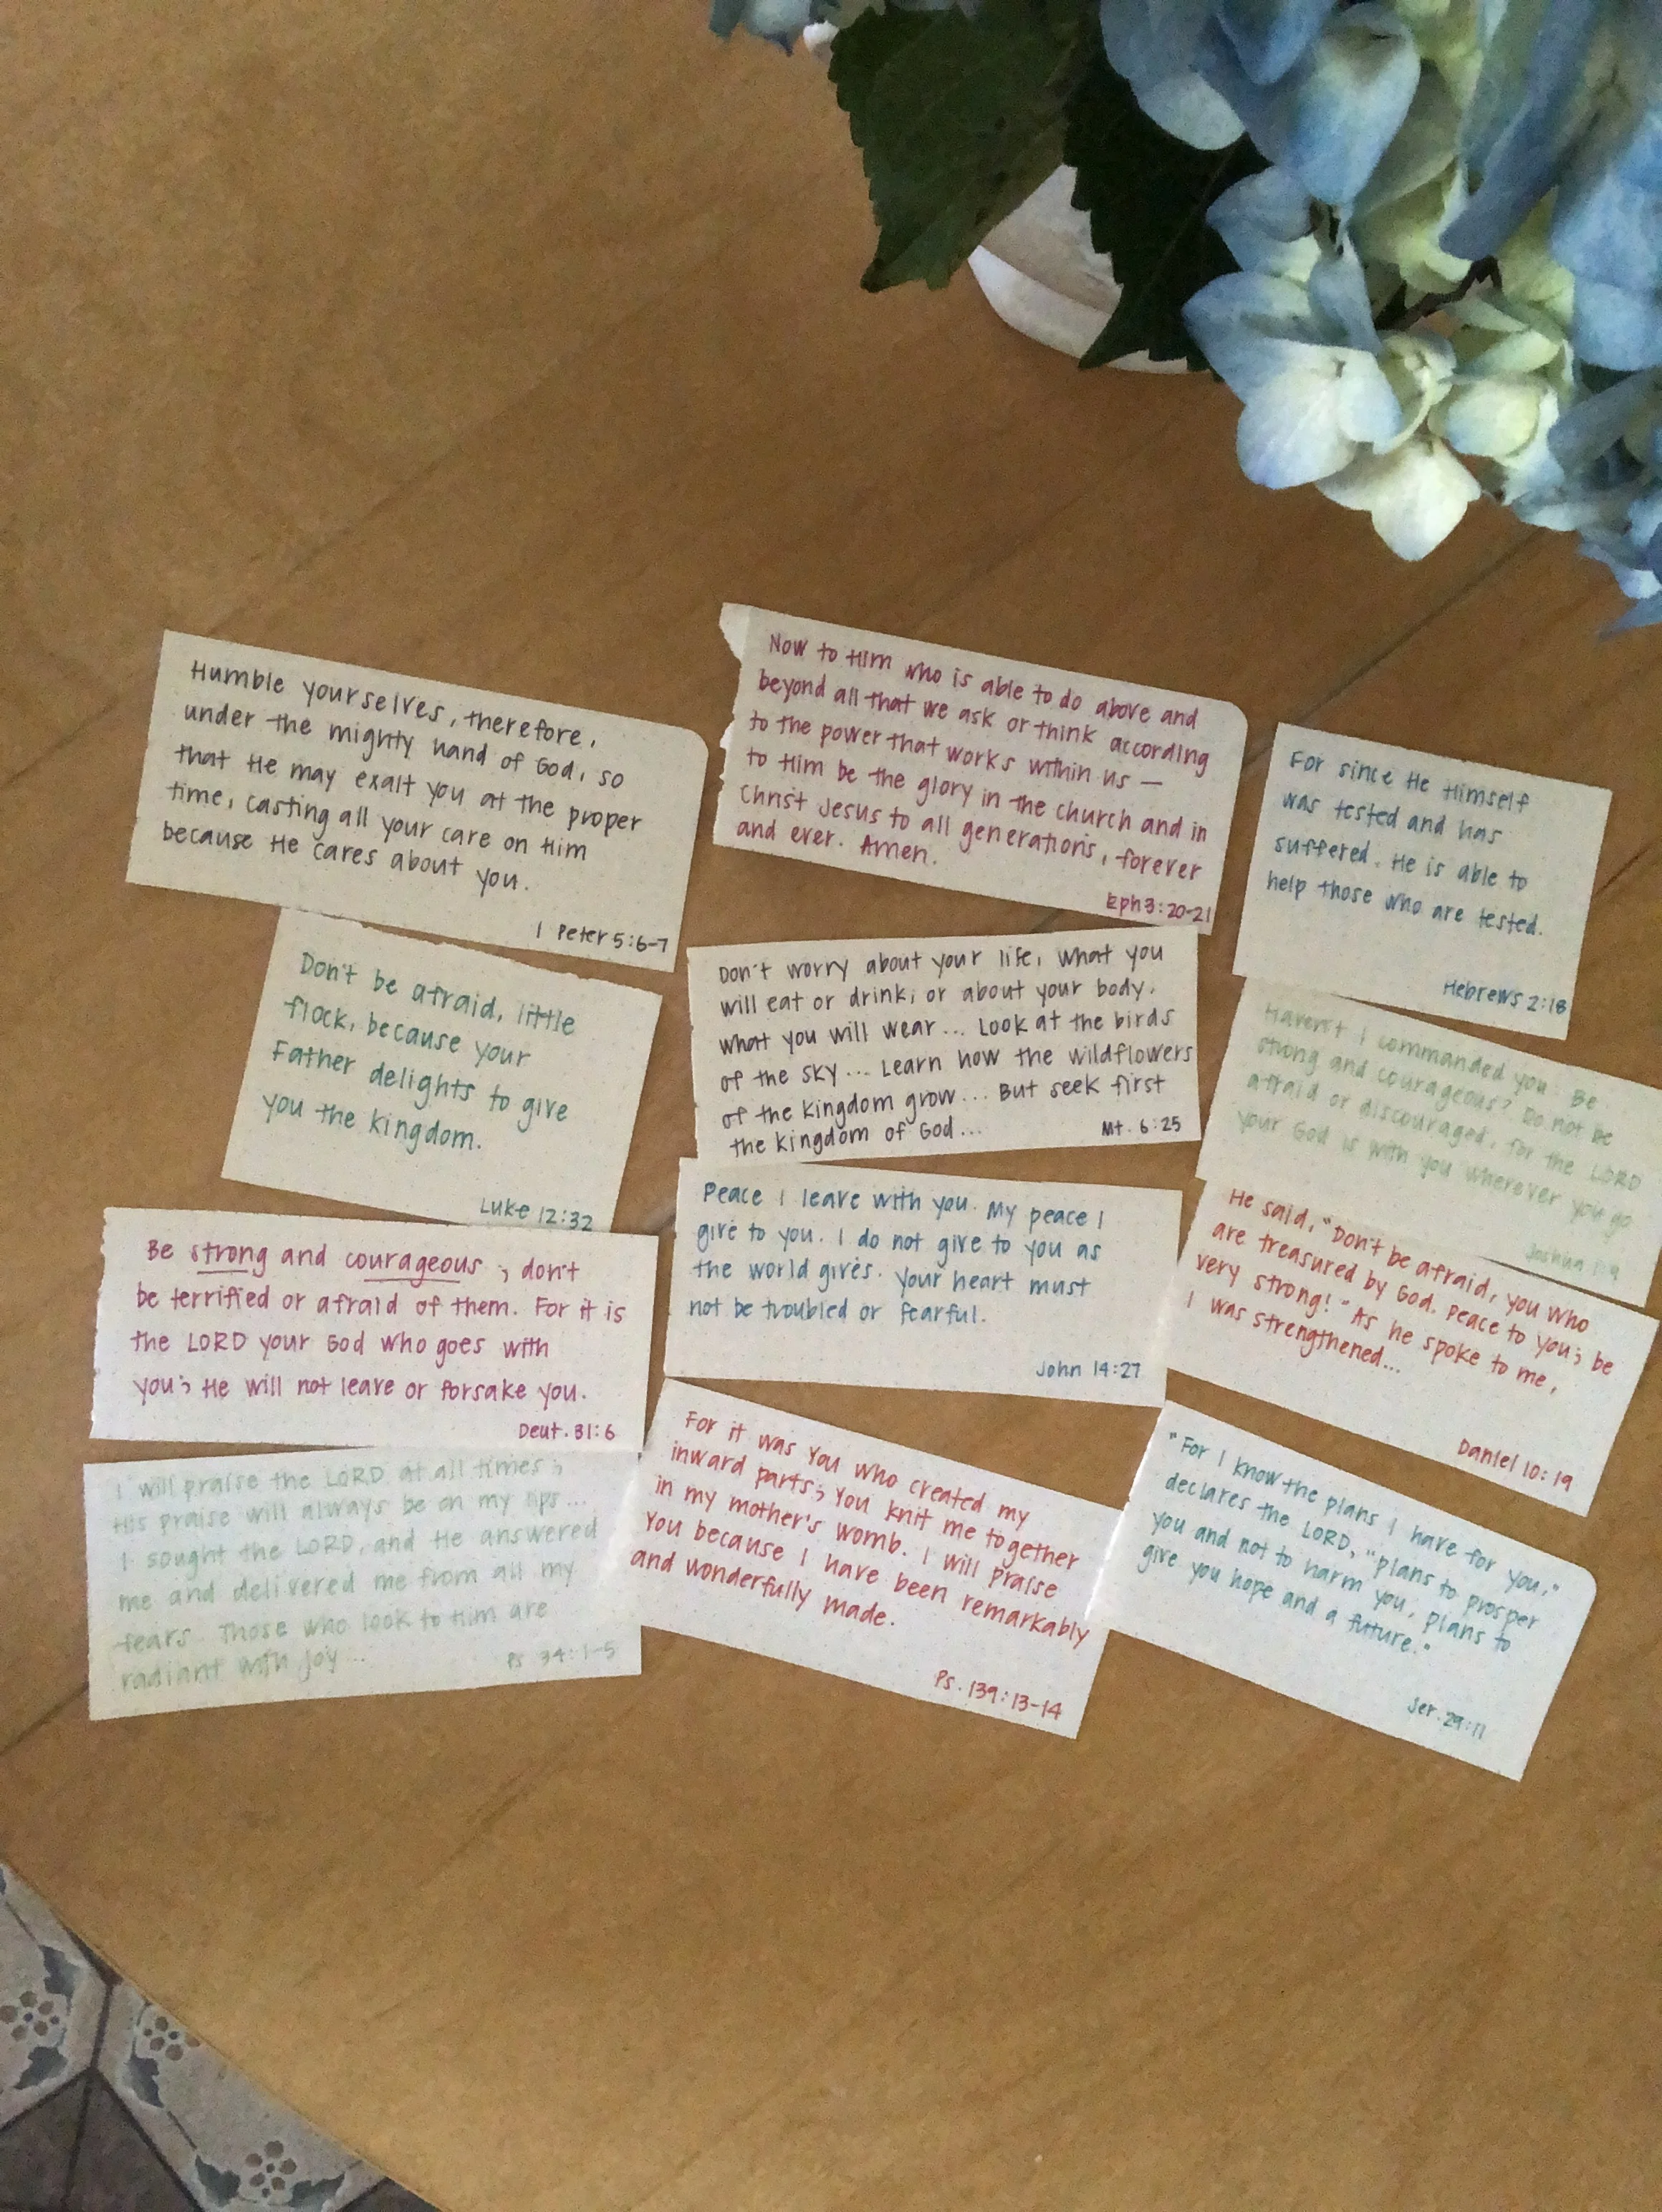 Humble yourselves, therefore,
under the mighty hand of God, so
that He may exalt you at the proper
time, casting all your care on Him
because He cares about you.
1 Peter 5:6-7
Now to Him who is able to do above and
beyond all that we ask or think according
to the power that works within us —
to Him be the glory in the church and in
Christ Jesus to all generations, forever
and ever. Amen.
Eph 3:20-21
For since He Himself
was tested and has
suffered, He is able to
help those who are tested.
Hebrews 2:18
Don't be afraid, little
flock, because your
Father delights to give
you the kingdom.
Luke 12:32
Don't worry about your life, what you
will eat or drink; or about your body,
what you will wear... Look at the birds
of the sky... Learn how the wildflowers
of the kingdom grow... But seek first
the kingdom of God...
Mt. 6:25
Haven't I commanded you: Be
strong and courageous? Do not be
afraid or discouraged, for the LORD
your God is with you wherever you go
Joshua 1:9
Be strong and courageous; don't
be terrified or afraid of them. For it is
the LORD your God who goes with
you; He will not leave or forsake you.
Deut. 31:6
Peace I leave with you. My peace I
give to you. I do not give to you as
the world gives. Your heart must
not be troubled or fearful.
John 14:27
He said, "Don't be afraid, you who
are treasured by God. Peace to you; be
very strong!" As he spoke to me,
I was strengthened...
Daniel 10:19
I will praise the LORD at all times;
His praise will always be on my lips...
I sought the LORD, and He answered
me and delivered me from all my
fears. Those who look to Him are
radiant with joy...
Ps 34:1-5
For it was You who created my
inward parts; You knit me together
in my mother's womb. I will praise
You because I have been remarkably
and wonderfully made.
Ps. 139:13-14
"For I know the plans I have for you,"
declares the LORD, "plans to prosper
you and not to harm you, plans to
give you hope and a future."
Jer. 29:11